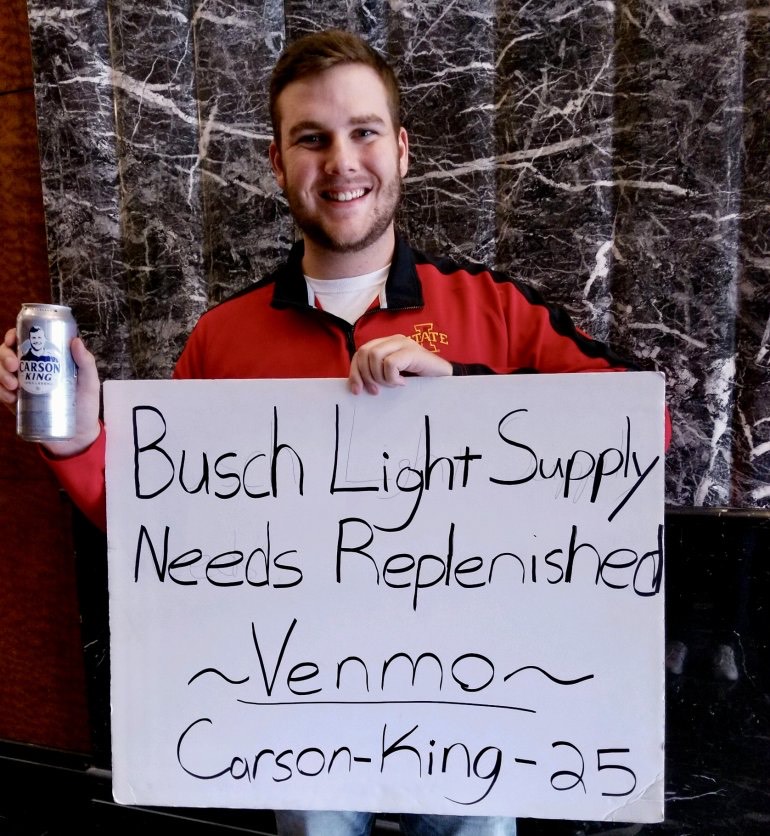 STATE
CARSON
KING
Busch Light Supply
Needs Replenished
~Venmo~
Carson-King-25